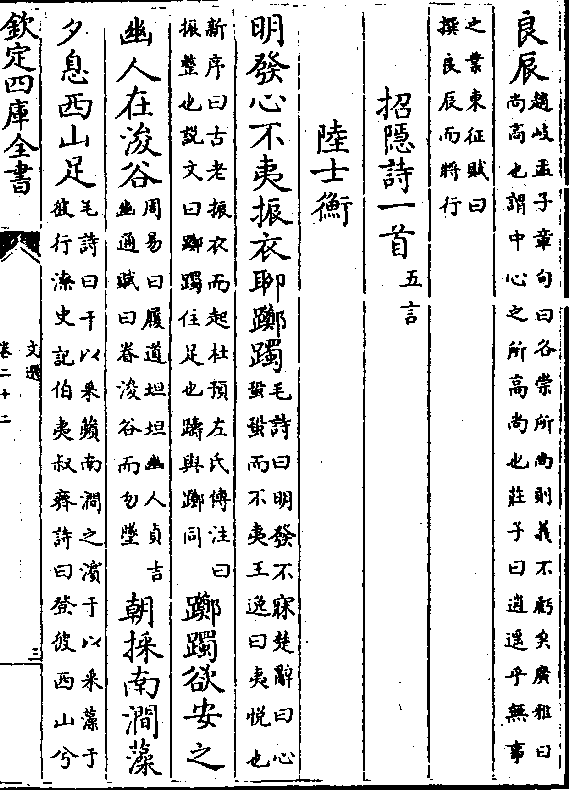 良辰趙岐孟子章句曰各崇所尚則義不虧矣廣雅曰
尚高也謂中心之所高尚也莊子曰逍遥乎無事
之業東征賦曰
撰良辰而將行
招隱詩一首五言
陸士衡
明發心不夷振衣聊躑躅毛詩曰明發不寐楚辭曰心
蛩蛩而不夷王逸曰夷悦也
新序曰古老振衣而起杜預左氏傳注曰
振整也説文曰躑躅住足也躊與躑同
躑躅欲安之
幽人在浚谷周易曰履道坦坦幽人貞吉
幽通賦曰眷浚谷而勿墜
朝採南澗藻
夕息西山足毛詩曰于以采蘋南澗之濱于以采藻于
彼行潦史記伯夷叔齊詩曰登彼西山兮
欽定四庫全書
文選
卷二十二
三